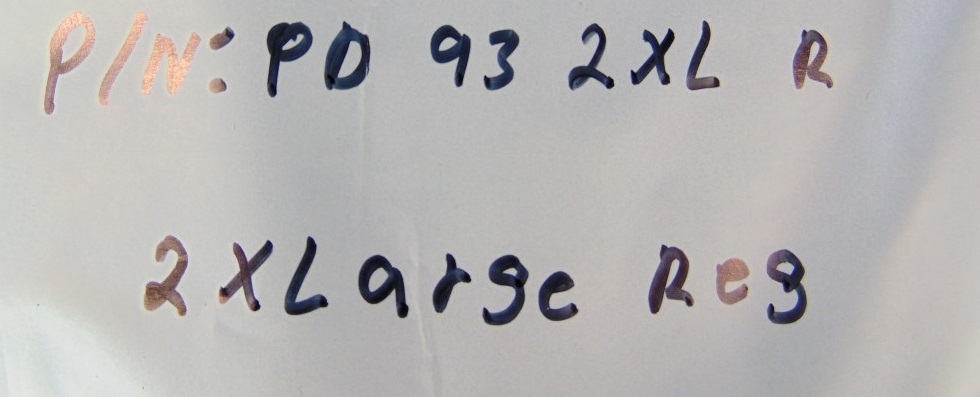 P/N: PD 93 2XL R
2XLarge Reg